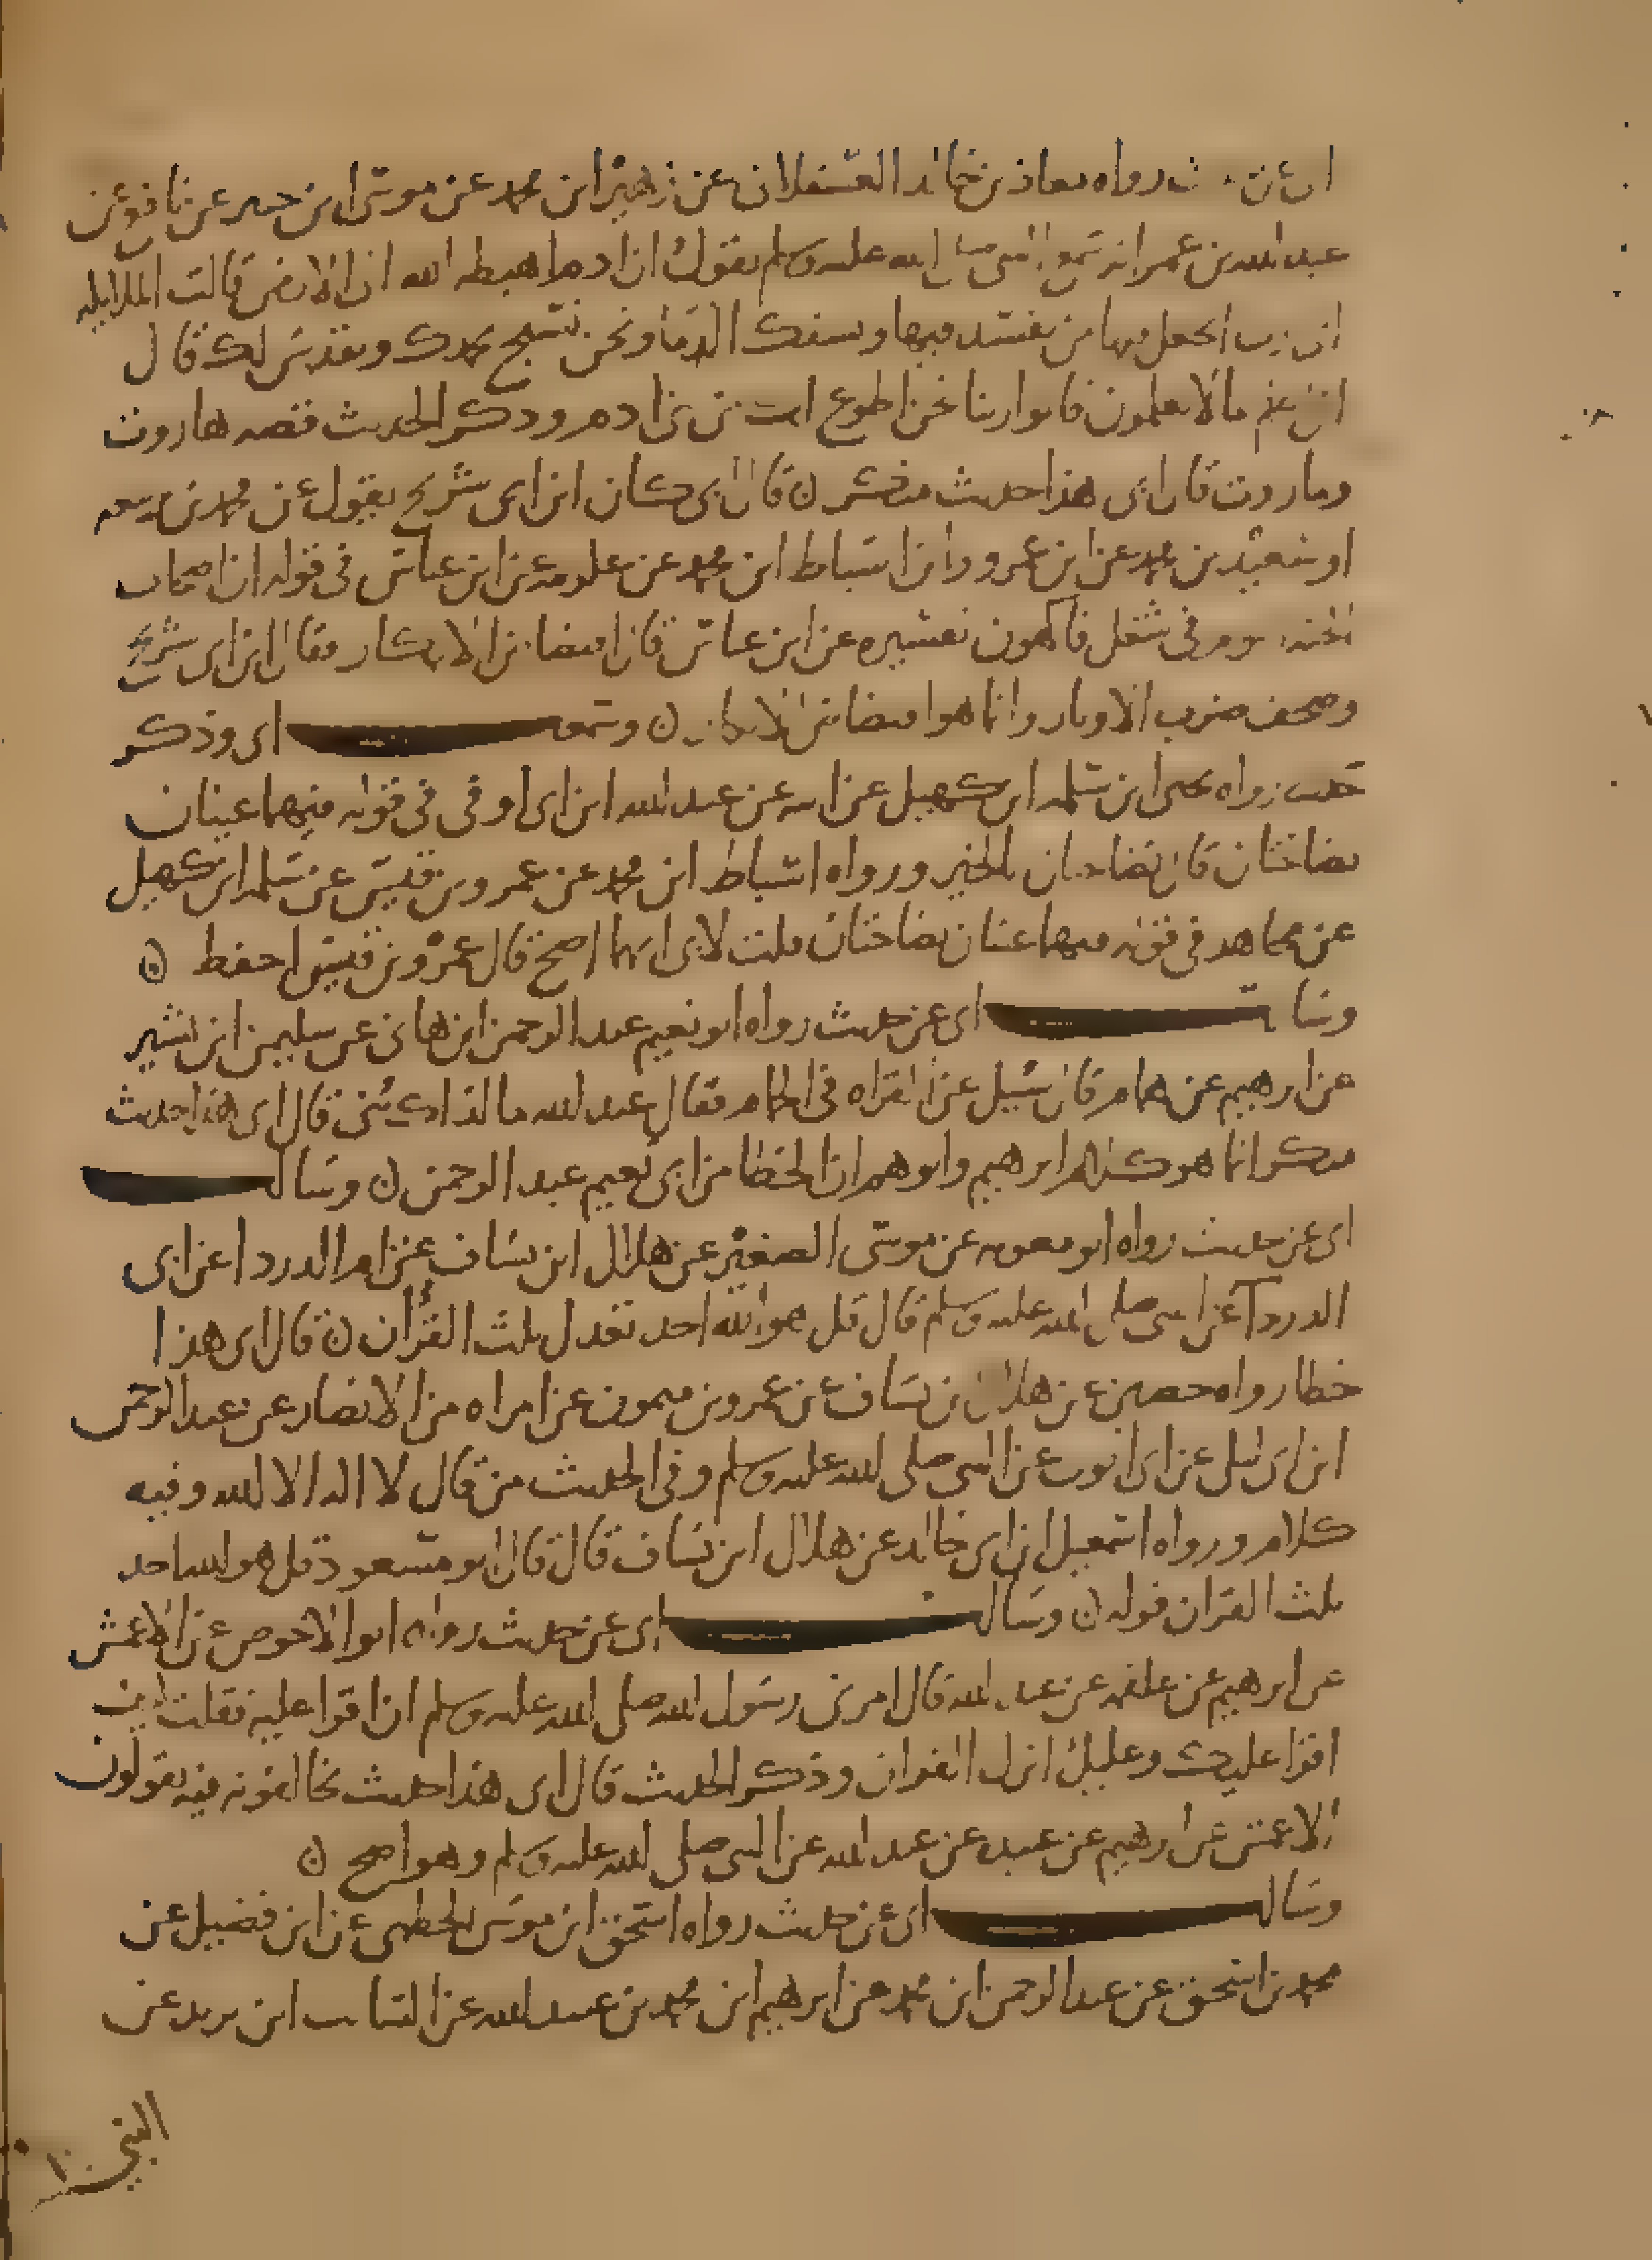 ابي عن حديث رواه معاذ بن خالد العسقلاني عن زهير ابن محمد عن موسى ابن جبير عن نافع عن
عبد الله بن عمر انه سمع النبي صلى الله عليه وسلم يقول ان ادم اهبطه الله الى الارض قالت الملايكه
اي رب اتجعل فيها من يفسد فيها ويسفك الدما ونحن نسبح بحمدك ونقدس لك قال
اني اعلم ما لا تعلمون قالوا ربنا نحن اطوع لك من بني ادم وذكر الحديث قصه هاروت
وماروت قال ابي هذا حديث منكر ن قال ابي كان ابن ابي سريج يقول عن محمد بن سعيد
او سعيد بن محمد عن ابن عمرو وابن اسباط ابن محمد عن عكرمه عن ابن عباس في قوله ان اصحاب
الجنه اليوم في شغل فاكهون تفسيره عن ابن عباس قال افتضاض الابكار فقال ابن ابي سريج
وصحف ضرب الاوتار وانما هو افتضاض الابكار ن وسمعت ابي وذكر
حديث رواه يحيى ابن سلمه ابن كهيل عن ابيه عن عبد الله ابن ابي اوفى في قوله فيهما عينان
نضاختان قال نضاختان بالخير ورواه اسباط ابن محمد عن عمرو بن قيس عن سلمه ابن كهيل
عن مجاهد في قوله فيهما عينان نضاختان قلت لابي ايهما اصح قال عمرو بن قيس احفظ ن
وسالت ابي عن حديث رواه ابو نعيم عبد الرحمن ابن هاني عن سليمن ابن بشير
عن ابرهيم عن همام قال سئل عن القراه في الحمام فقال عبد الله ما لذاك بني قال ابي هذا حديث
منكر انما هو كلام ابرهيم وابوهم ان الخطا من ابي نعيم عبد الرحمن ن وسالت
ابي عن حديث رواه ابو معويه عن موسى الصغير عن هلال ابن يساف عن ام الدردا عن ابي
الدردآ عن النبي صلى الله عليه وسلم قال قل هو الله احد تعدل ثلث القرأن ن قال ابي هذا
خطا رواه حصين عن هلال بن يساف عن عمرو بن ميمون عن امراه من الانصار عن عبد الرحمن
ابن ابي ليلى عن ابي ايوب عن النبي صلى الله عليه وسلم وفي الحديث من قال لا اله الا الله وفيه
كلام ورواه اسمعيل ابن ابي خالد عن هلال ابن يساف قال قال ابو مسعود قل هو الله احد
ثلث القران قوله ن وسالت ابي عن حديث رواه ابو الاحوص عن الاعمش
عن ابرهيم عن علقمه عن عبد الله قال امرني رسول الله صلى الله عليه وسلم ان اقرا عليه فقلت
اقرا عليك وعليك انزل القران وذكر الحديث قال ابي هذا حديث يخالفونه فيه يقولون
الاعمش عن ابرهيم عن عبيده عن عبد الله عن النبي صلى الله عليه وسلم وهو اصح ن
وسالت ابي عن حديث رواه اسحق ابن موسى الخطمي عن ابن فضيل عن
محمد بن اسحق عن عبد الرحمن ابن محمد عن ابرهيم ابن محمد بن عبد الله عن السايب ابن يزيد عن
النبي